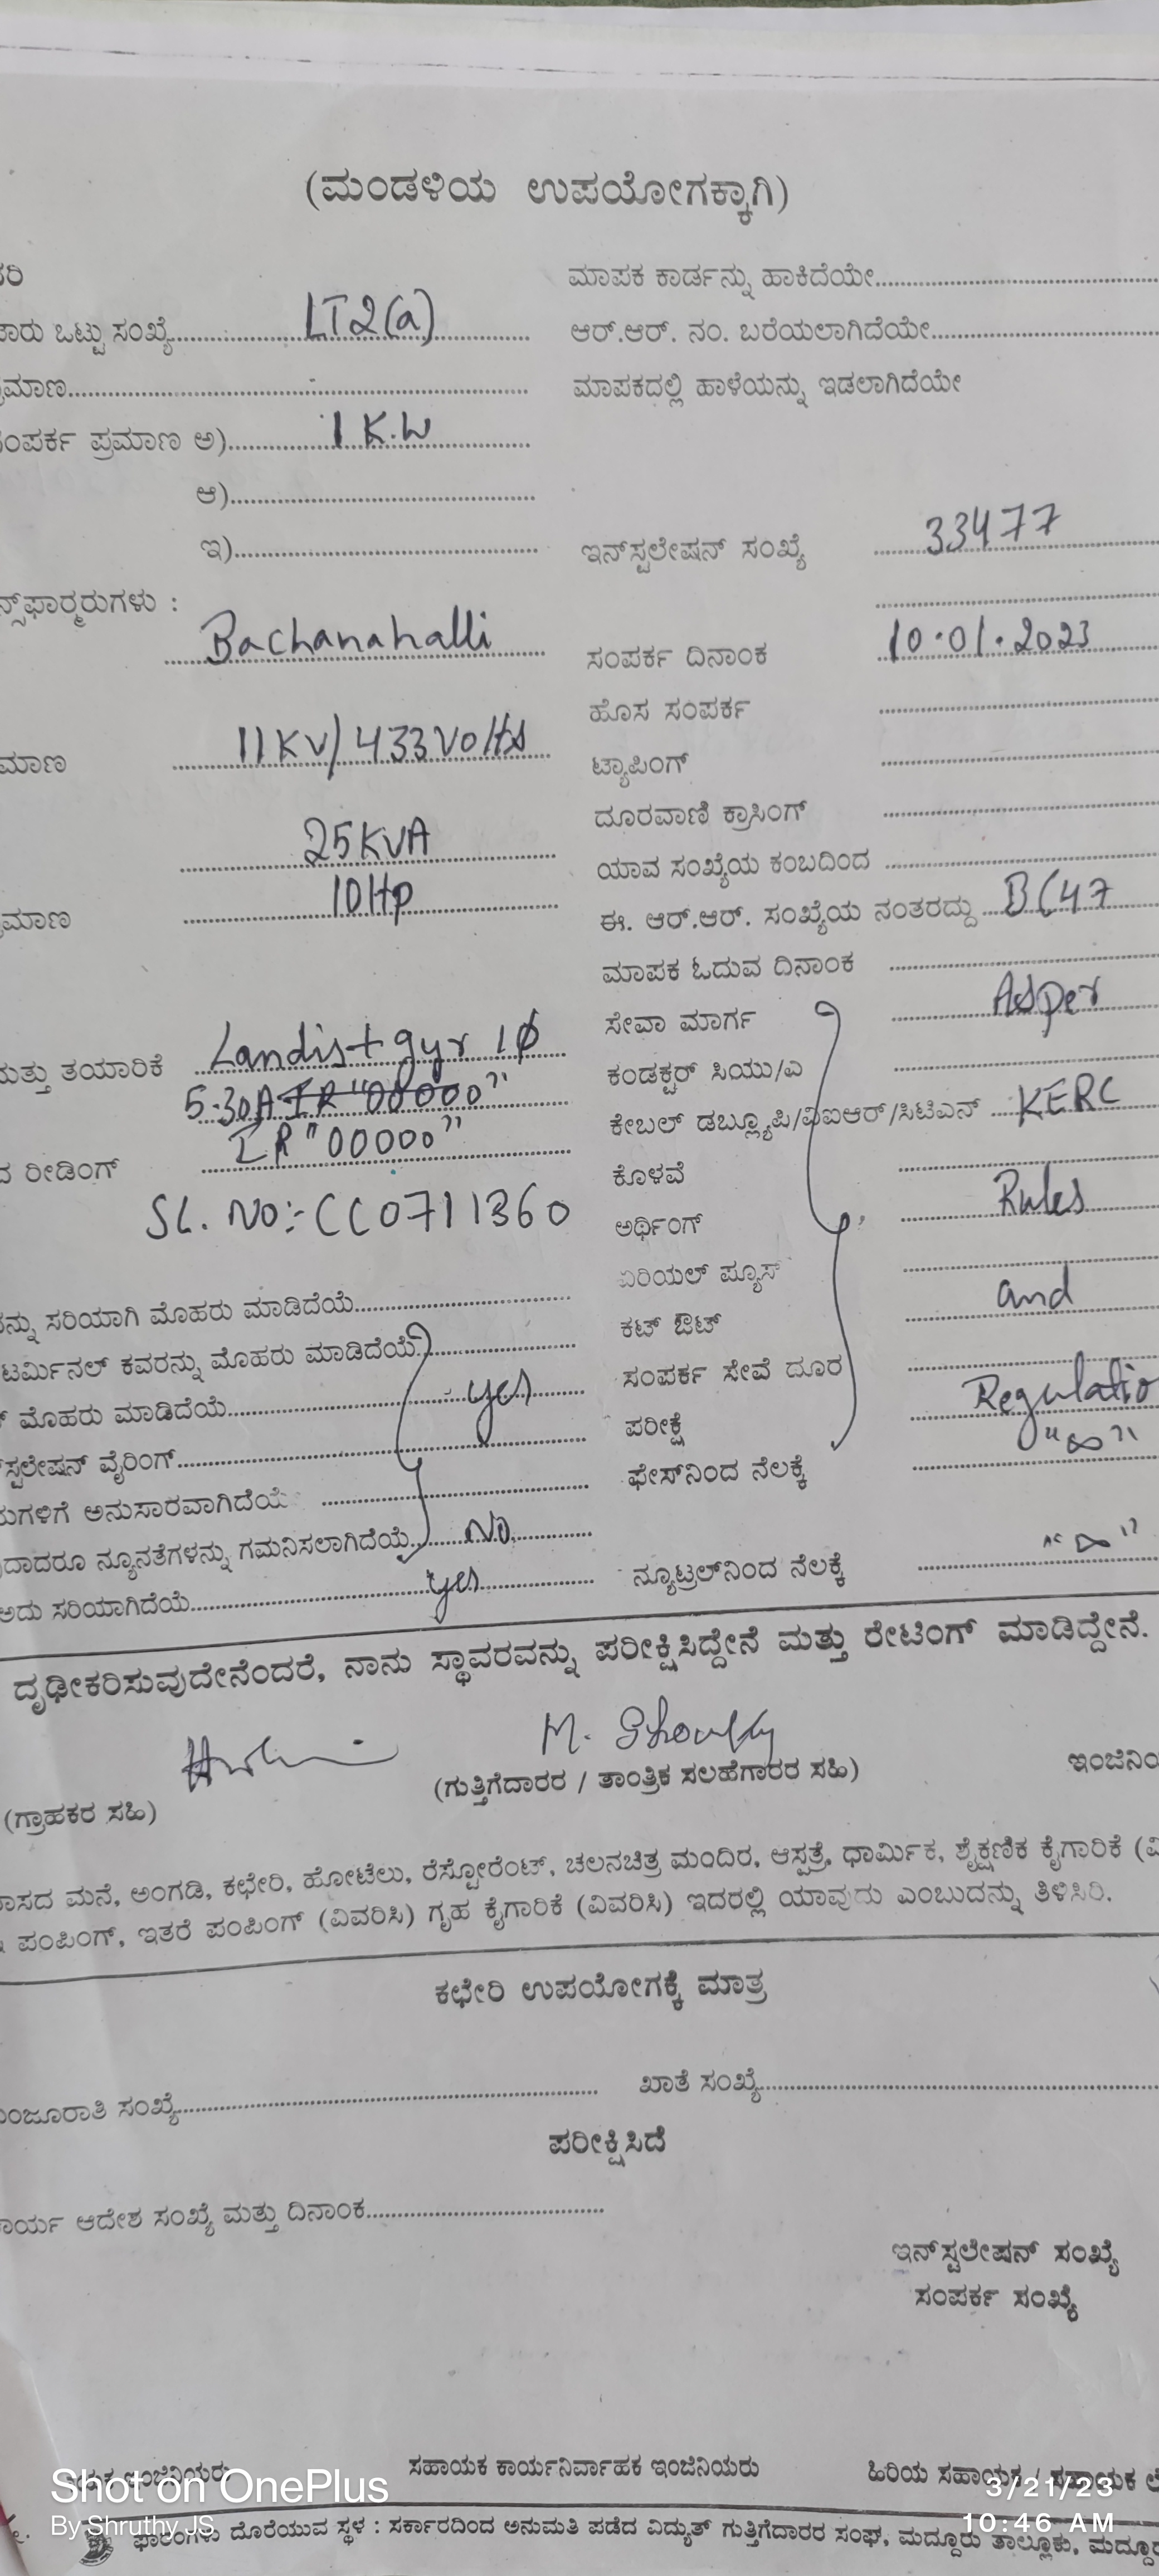 (ಮಂಡಳಿಯ ಉಪಯೋಗಕ್ಕಾಗಿ)
ಮಾಪಕ ಕಾರ್ಡನ್ನು ಹಾಕಿದೆಯೇ
ಒಟ್ಟು ಸಂಖ್ಯೆ LT2(a) ಆರ್.ಆರ್. ನಂ. ಬರೆಯಲಾಗಿದೆಯೇ
ಮಾಪಕದಲ್ಲಿ ಹಾಳೆಯನ್ನು ಇಡಲಾಗಿದೆಯೇ
ಪ್ರಮಾಣ ಅ) 1 K.W
ಆ)
ಇ) ಇನ್‌ಸ್ಟಲೇಷನ್ ಸಂಖ್ಯೆ 33477
Bachanahalli ಸಂಪರ್ಕ ದಿನಾಂಕ 10.01.2023
ಹೊಸ ಸಂಪರ್ಕ
11KV/433Volts ಟ್ಯಾಪಿಂಗ್
ದೂರವಾಣಿ ಕ್ರಾಸಿಂಗ್
25KVA ಯಾವ ಸಂಖ್ಯೆಯ ಕಂಬದಿಂದ
10Hp ಈ. ಆರ್.ಆರ್. ಸಂಖ್ಯೆಯ ನಂತರದ್ದು
ಮಾಪಕ ಓದುವ ದಿನಾಂಕ
ಸೇವಾ ಮಾರ್ಗ Asper
ಮತ್ತು ತಯಾರಿಕೆ Landis+gyr 1ϕ ಕಂಡಕ್ಟರ್ ಸಿಯು/ಎ
5-30A IR "00000" ಕೇಬಲ್ ಡಬ್ಲ್ಯೂಪಿ/ವಿಐಆರ್/ಸಿಟಿಎನ್ KERC
ರೀಡಿಂಗ್ IR "00000" ಕೊಳವೆ
SL. NO:- CC0711360 ಅರ್ಥಿಂಗ್ Rules
ಏರಿಯಲ್ ಪ್ಯೂಸ್
ಸರಿಯಾಗಿ ಮೊಹರು ಮಾಡಿದೆಯೆ ಕಟ್ ಔಟ್ and
ಟರ್ಮಿನಲ್ ಕವರನ್ನು ಮೊಹರು ಮಾಡಿದೆಯೆ ಸಂಪರ್ಕ ಸೇವೆ ದೂರ
ಮೊಹರು ಮಾಡಿದೆಯೆ yes ಪರೀಕ್ಷೆ Regulatio
ವೈರಿಂಗ್ ಫೇಸ್‌ನಿಂದ ನೆಲಕ್ಕೆ "∞"
ಅನುಸಾರವಾಗಿದೆಯೆ
ನ್ಯೂನತೆಗಳನ್ನು ಗಮನಿಸಲಾಗಿದೆಯೆ No ನ್ಯೂಟ್ರಲ್‌ನಿಂದ ನೆಲಕ್ಕೆ "∞"
ಅದು ಸರಿಯಾಗಿದೆಯೆ yes
ದೃಢೀಕರಿಸುವುದೇನೆಂದರೆ, ನಾನು ಸ್ಥಾವರವನ್ನು ಪರೀಕ್ಷಿಸಿದ್ದೇನೆ ಮತ್ತು ರೇಟಿಂಗ್ ಮಾಡಿದ್ದೇನೆ.
(ಗ್ರಾಹಕರ ಸಹಿ) (ಗುತ್ತಿಗೆದಾರರ / ತಾಂತ್ರಿಕ ಸಲಹೆಗಾರರ ಸಹಿ)
ಮನೆ, ಅಂಗಡಿ, ಕಛೇರಿ, ಹೋಟೆಲು, ರೆಸ್ಟೋರೆಂಟ್, ಚಲನಚಿತ್ರ ಮಂದಿರ, ಆಸ್ಪತ್ರೆ, ಧಾರ್ಮಿಕ, ಶೈಕ್ಷಣಿಕ ಕೈಗಾರಿಕೆ
ಪಂಪಿಂಗ್, ಇತರೆ ಪಂಪಿಂಗ್ (ವಿವರಿಸಿ) ಗೃಹ ಕೈಗಾರಿಕೆ (ವಿವರಿಸಿ) ಇದರಲ್ಲಿ ಯಾವುದು ಎಂಬುದನ್ನು ತಿಳಿಸಿರಿ.
ಕಛೇರಿ ಉಪಯೋಗಕ್ಕೆ ಮಾತ್ರ
ಸಂಖ್ಯೆ ಖಾತೆ ಸಂಖ್ಯೆ
ಪರೀಕ್ಷಿಸಿದೆ
ಆದೇಶ ಸಂಖ್ಯೆ ಮತ್ತು ದಿನಾಂಕ
ಇನ್‌ಸ್ಟಲೇಷನ್ ಸಂಖ್ಯೆ
ಸಂಪರ್ಕ ಸಂಖ್ಯೆ
ಸಹಾಯಕ ಕಾರ್ಯನಿರ್ವಾಹಕ ಇಂಜಿನಿಯರು ಹಿರಿಯ ಸಹಾಯಕ / ಸಹಾಯಕ
Shot on OnePlus 3/21/23
By Shruthy JS 10:46 AM
ಫಾರಂಗಳು ದೊರೆಯುವ ಸ್ಥಳ : ಸರ್ಕಾರದಿಂದ ಅನುಮತಿ ಪಡೆದ ವಿದ್ಯುತ್ ಗುತ್ತಿಗೆದಾರರ ಸಂಘ, ಮದ್ದೂರು ತಾಲ್ಲೂಕು,